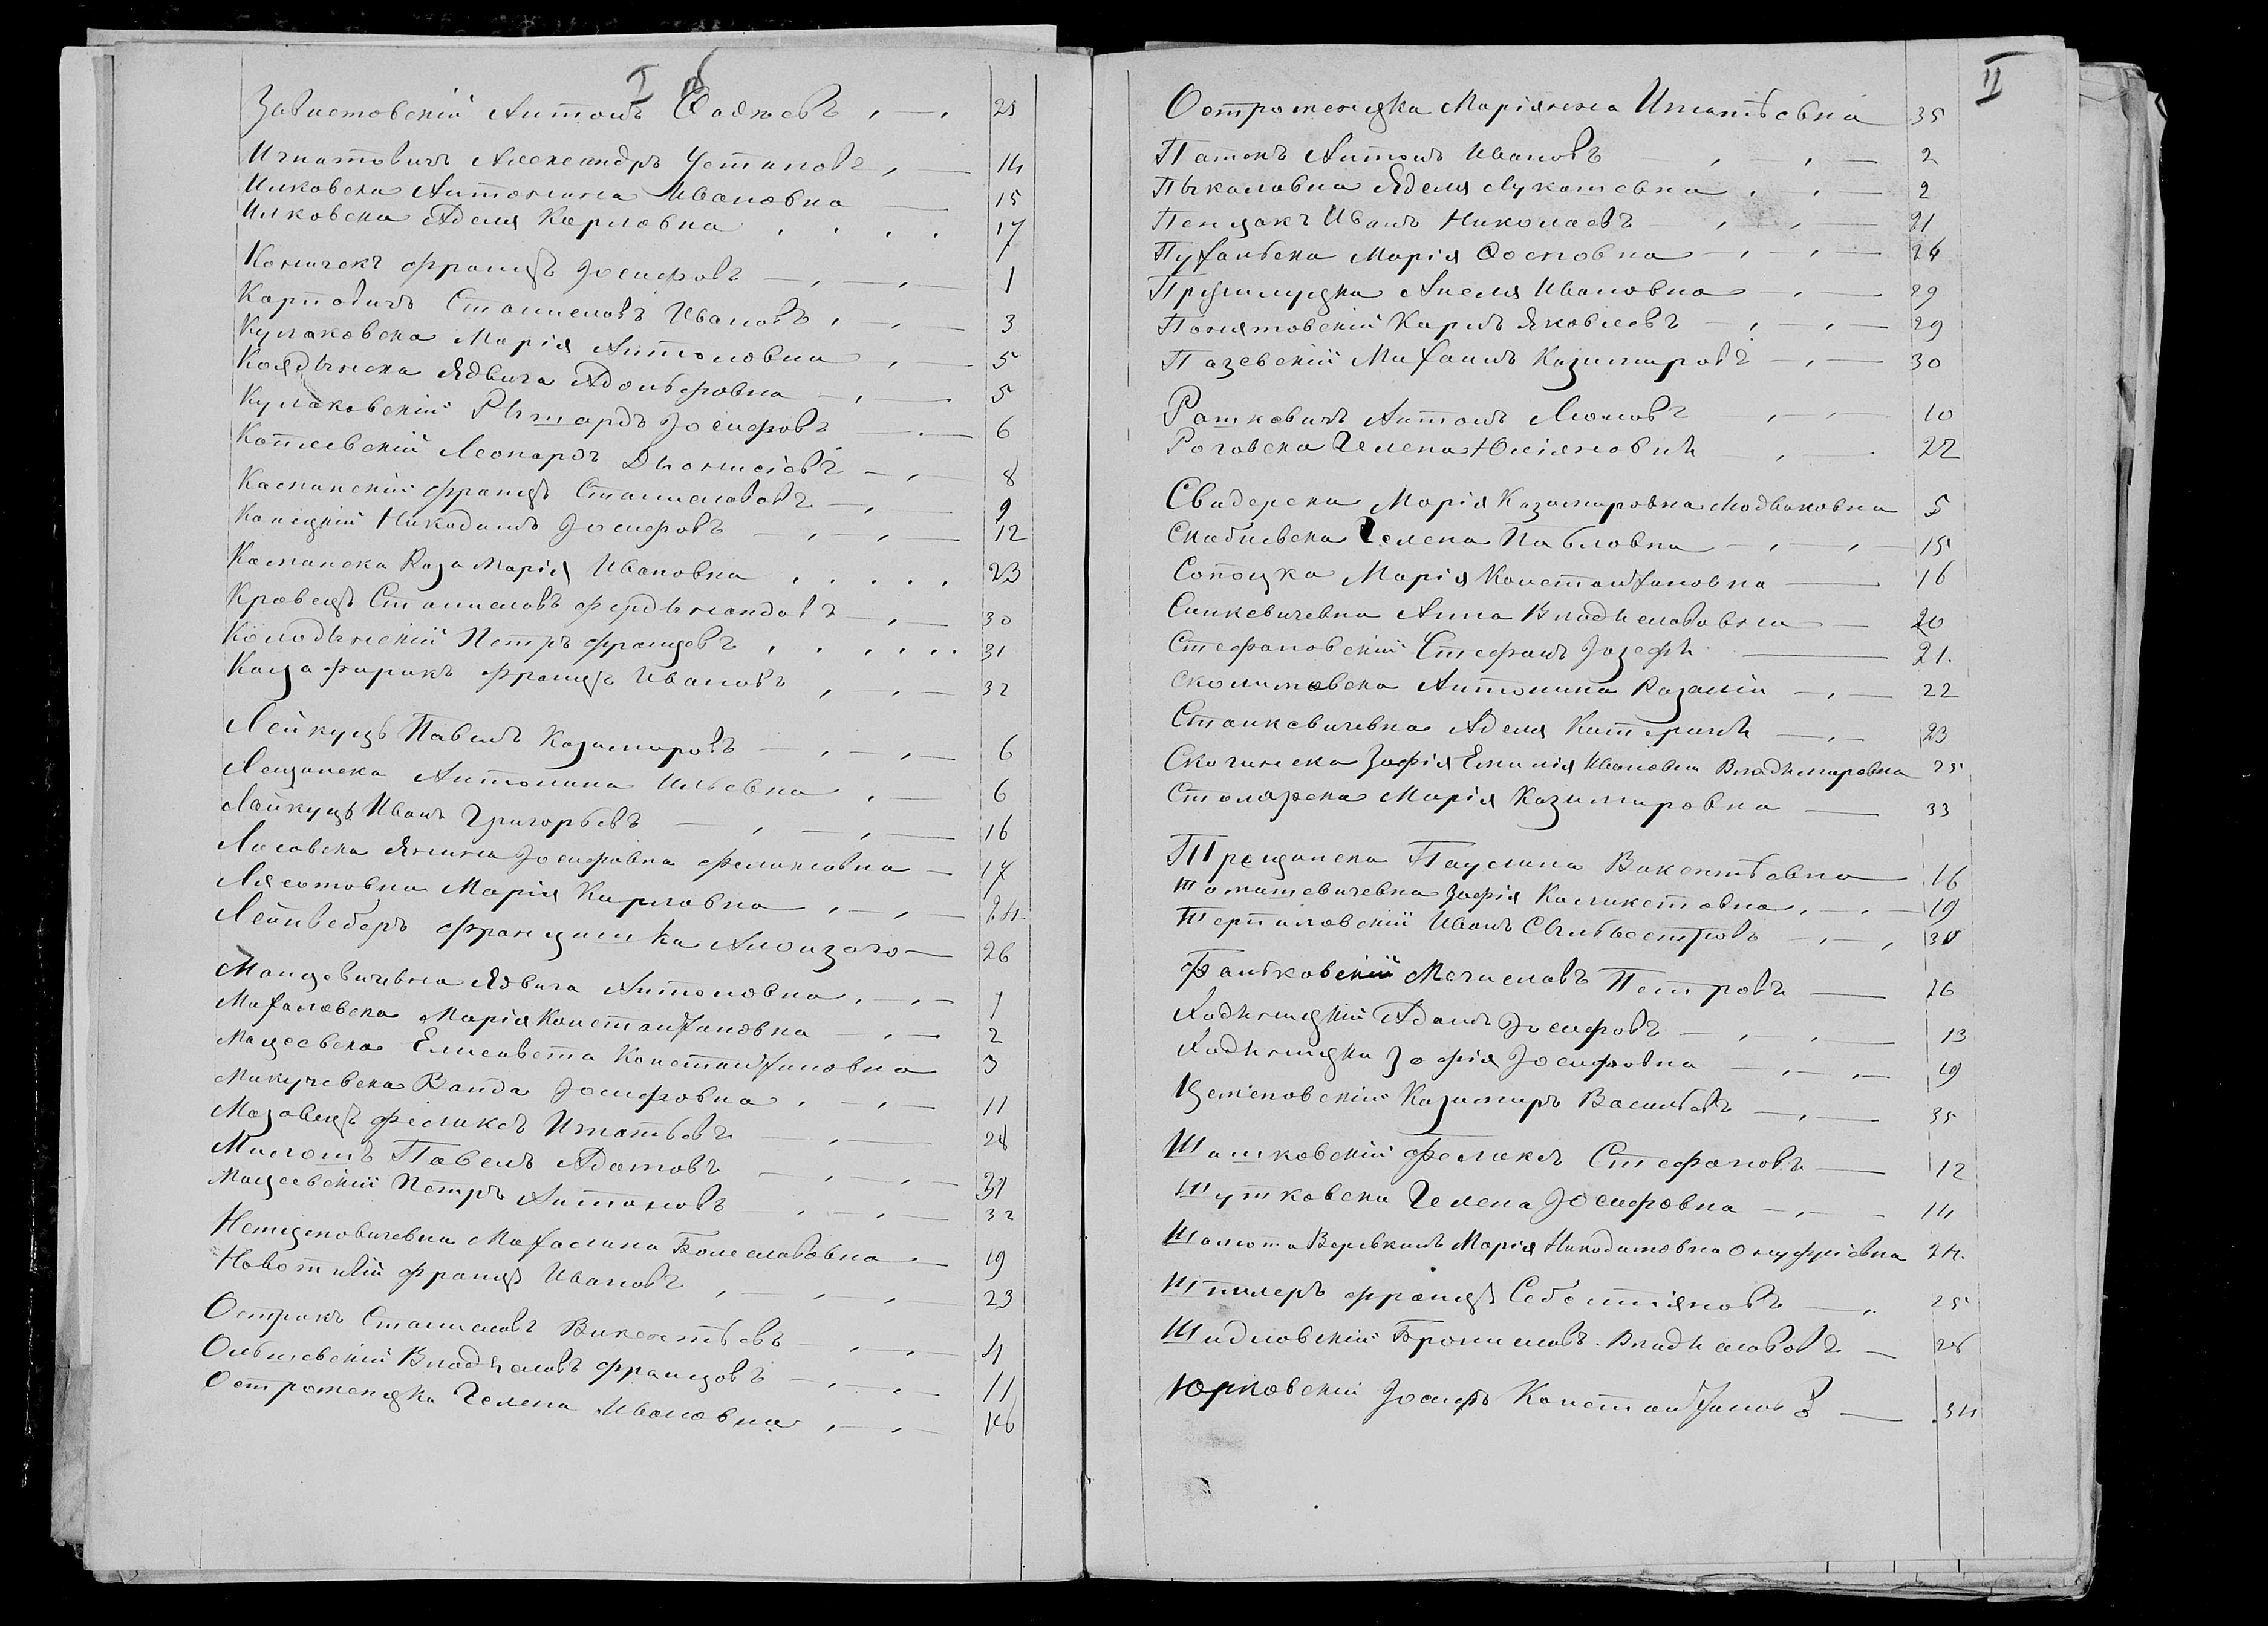 I об
Завистовскій Антонъ Фадѣевъ 25
Игнатовичъ Александръ Устиновъ 14
Илковска Антонина Ивановна 15
Илковска Аделя Карловна 17
Коничекъ Францъ Іосифовъ 1
Карповичъ Станиславъ Ивановъ 3
Кулаковска Марія Антоновна 5
Коядынска Ядвига Адольфовна 5
Кулаковскій Рышардъ Іосифовъ 6
Котлевскій Леонардъ Діонисіевъ 8
Каспанскій Францъ Станиславовъ 9
Канецкій Никодимъ Іосифовъ 12
Каспанска Роза Марія Ивановна 23
Кравецъ Станиславъ Фердынандовъ 30
Колодынскій Петръ Францевъ 31
Каза Фирикъ Францъ Ивановъ 32
Лейкуцъ Павелъ Казимировъ 6
Лещинска Антонина Ильевна 6
Лайкуцъ Иванъ Григорьевъ 16
Лисовска Янина Іосифовна Феликсовна 17
Лясотовна Марія Карловна 24
Лейнведеръ Францишка Алоизого 26
Манцевичевна Ядвига Антоновна 1
Михаловска Марія Константиновна 2
Мацеевска Елисавета Константиновна 3
Микучевска Ванда Іосифовна 11
Мазовецъ Феликсъ Игнатьевъ 28
Милошъ Павелъ Адамовъ 31
Мацеевскій Петръ Антоновъ 32
Немценовичевна Михалина Болеславовна 19
Новотный Францъ Ивановъ 23
Острикъ Станиславъ Викентьевъ 4
Ольшевскій Владыславъ Францовъ 11
Остроменцка Гелена Ивановна 16
II
Остроменцка Маріянна Игнатьевна 35
Патокъ Антонъ Ивановъ 2
Пыкаловна Яделя Лукашевна 2
Пенцакъ Иванъ Николаевъ 21
Пухальска Марія Осиповна 26
Пршилуцка Анеля Ивановна 29
Понятовскій Карлъ Яковлевъ 29
Пазевскій Михаилъ Казимировъ 30
Ратковичъ Антонъ Леоновъ 10
Роговска Гелена Юліяновны 22
Свидерска Марія Казимировна Людвиковна 5
Скибневска Гелена Павловна 15
Сопоцка Марія Константиновна 16
Синкевичевна Анна Владыславовна 20
Стефановскій Стефанъ Іозефы 21.
Сколимовска Антонина Розаліи 22
Станкевичевна Аделя Катерины 23
Скочинска Зофія Емилія Ивановна Владымировна 25
Столярска Марія Казимировна 33
Трещанска Паулина Викентьевна 16
Томашевичевна Зофія Каликстовна 19
Терпиловскій Иванъ Сыльвестровъ 30
Фальковскій Мечиславъ Петровъ 26
Ходыницкій Адамъ Іосифовъ 13
Ходыницка Зофія Іосифовна 19
Цетеновскій Казимиръ Васильевъ 35
Шашковскій Феликсъ Стефановъ 12
Шутковска Гелена Іосифовна 14
Шалюта Веревкинъ Марія Никодимовна Онуфріевна 24.
Штилеръ Францъ Себестіяновъ 25
Шидловскій Брониславъ Владыславовъ 28
Юрковскій Іосифъ Константиновъ 34